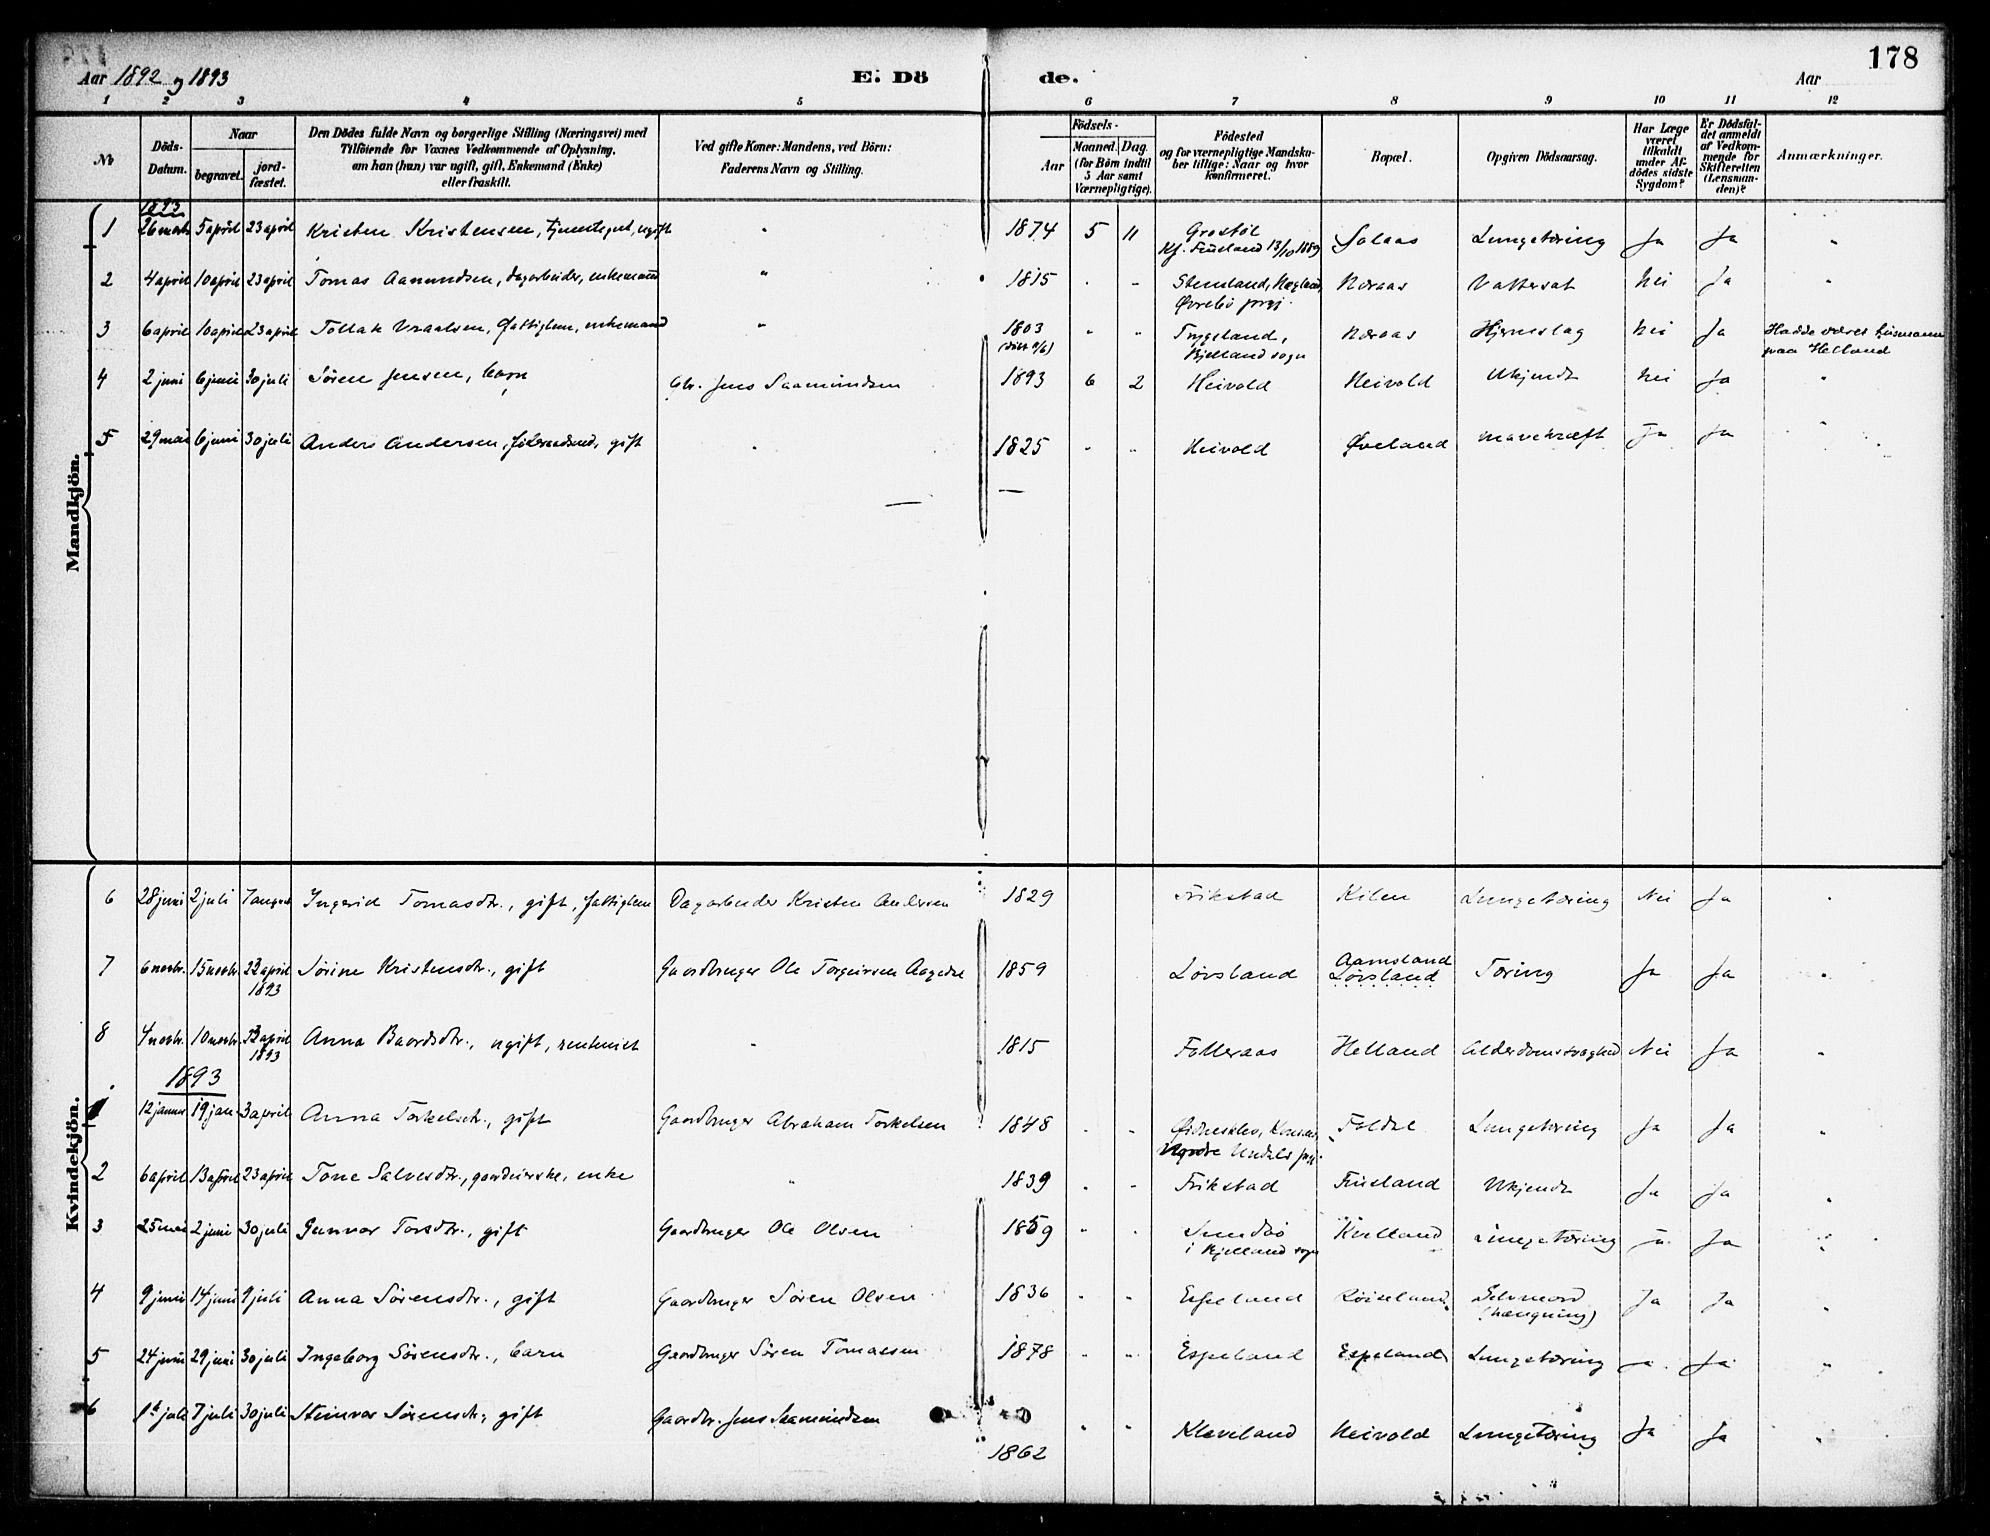 178
Aar 1892 og 1893 E. Dö de. Aar
1 2 3 4 5 6 7 8 9 10 11 12
No
Döds-Datum.
Naar begravet. jordfæstet.
Den Dödes fulde Navn og borgerlige Stilling (Næringsvei) med
Tilföiende for Voxnes Vedkommende af Oplysning,
om han (hun) var ugift, gift, Enkemand (Enke)
eller fraskilt.
Ved gifte Koner: Mandens, ved Börn:
Faderens Navn og Stilling.
Födsels-
Aar Maaned. Dag.
(for Börn indtil
5 Aar samt
Værnepligtige).
Födested
og for værnepligtige Mandska-
ber tillige: Naar og hvor
konfirmeret.
Bopæl.
Opgiven Dödsaarsag.
Har Læge
været
tilkaldt
under Af-
dödes sidste
Sygdom?
Er Dödsfal-
det anmeldt
af Vedkom-
mende for
Skifteretten
(Lensman-
den)?
Anmærkninger.
Mandkjön.
1893
1 26 marts 5 april 23 april Kristen Kristensen, tjenestegut, ugift " 1874 5 11 Grostöl Solaas Lungetæring Ja Ja "
Kf. Finsland 13/10 1889
2 4 april 10 april 23 april Tomas Aanundsen, dagarbeider, enkemand " 1815 " " Stemland, Hægland, Næraas Vattersot Nei Ja "
Øvrebö prgj.
3 6 april 10 april 23 april Tollak Vraalsen, fattiglem, enkemand " 1803 " " Trygsland, Næraas Hjerneslag Nei Ja Hadde været husmann
Bjelland sogn paa Helland
4 2 juni 6 juni 30 juli Sören Jensen, barn Gbr. Jens Saamundsen 1893 6 2 Heivold Heivold Ukjendt Nei Ja "
5 29 mai 6 juni 30 juli Anders Andersen, föderaadsmd, gift " 1825 " " Heivold Øveland mavekræft Ja Ja "
Kvindekjön.
6 28 juni 2 juli 7 august Ingerid Tomasdtr., gift, fattiglem Dagarbeider Kristen Andersen 1829 Frikstad Kilen Lungetæring Nei Ja "
7 6 novbr. 15 novbr. 23 april Sörine Kristensdtr., gift Gaardbruger Ole Torgeirsen Aagedal 1859 Lövsland Aamsland Tæring Ja Ja "
1893 Lövsland
8 4 novbr. 10 novbr. 23 april Anna Baardsdtr., ugift, " 1815 Folleraas Helland Alderdomssvaghed Nei Ja "
1893
1893
1 12 januar 19 jan. 3 april Anna Torkelsdtr., gift Gaardbruger Abraham Torkelsen 1848 " " Foldal Lungetæring Ja Ja "
Nordre Undals prgj.
2 6 april 13 april 23 april Tone Salvesdtr., gardeierske, enke " 1839 " " Frikstad Finsland Ukjendt Ja Ja "
3 25 mai 2 juni 30 juli Gunvor Torsdtr., gift Gaardbruger Ole Olsen 1859 " " Sundbö Lungetæring Ja Ja "
i Bjelland sogn
4 9 juni 14 juni 9 juli Anna Sörensdtr., gift Gaardbruger Sören Olsen 1836 " " Espeland Röiseland Selvmord Ja Ja "
(hængning)
5 24 juni 29 juni 30 juli Ingeborg Sörensdtr., barn Gaardbruger Sören Tomassen 1878 " " Espeland Espeland Lungetæring Ja Ja "
6 1st juli 7 juli 30 juli Steinvor Sörensdtr, gift Gaardbr. Jens Saamundsen 1862 " " Kleveland Heivold Lungetæring Ja Ja "